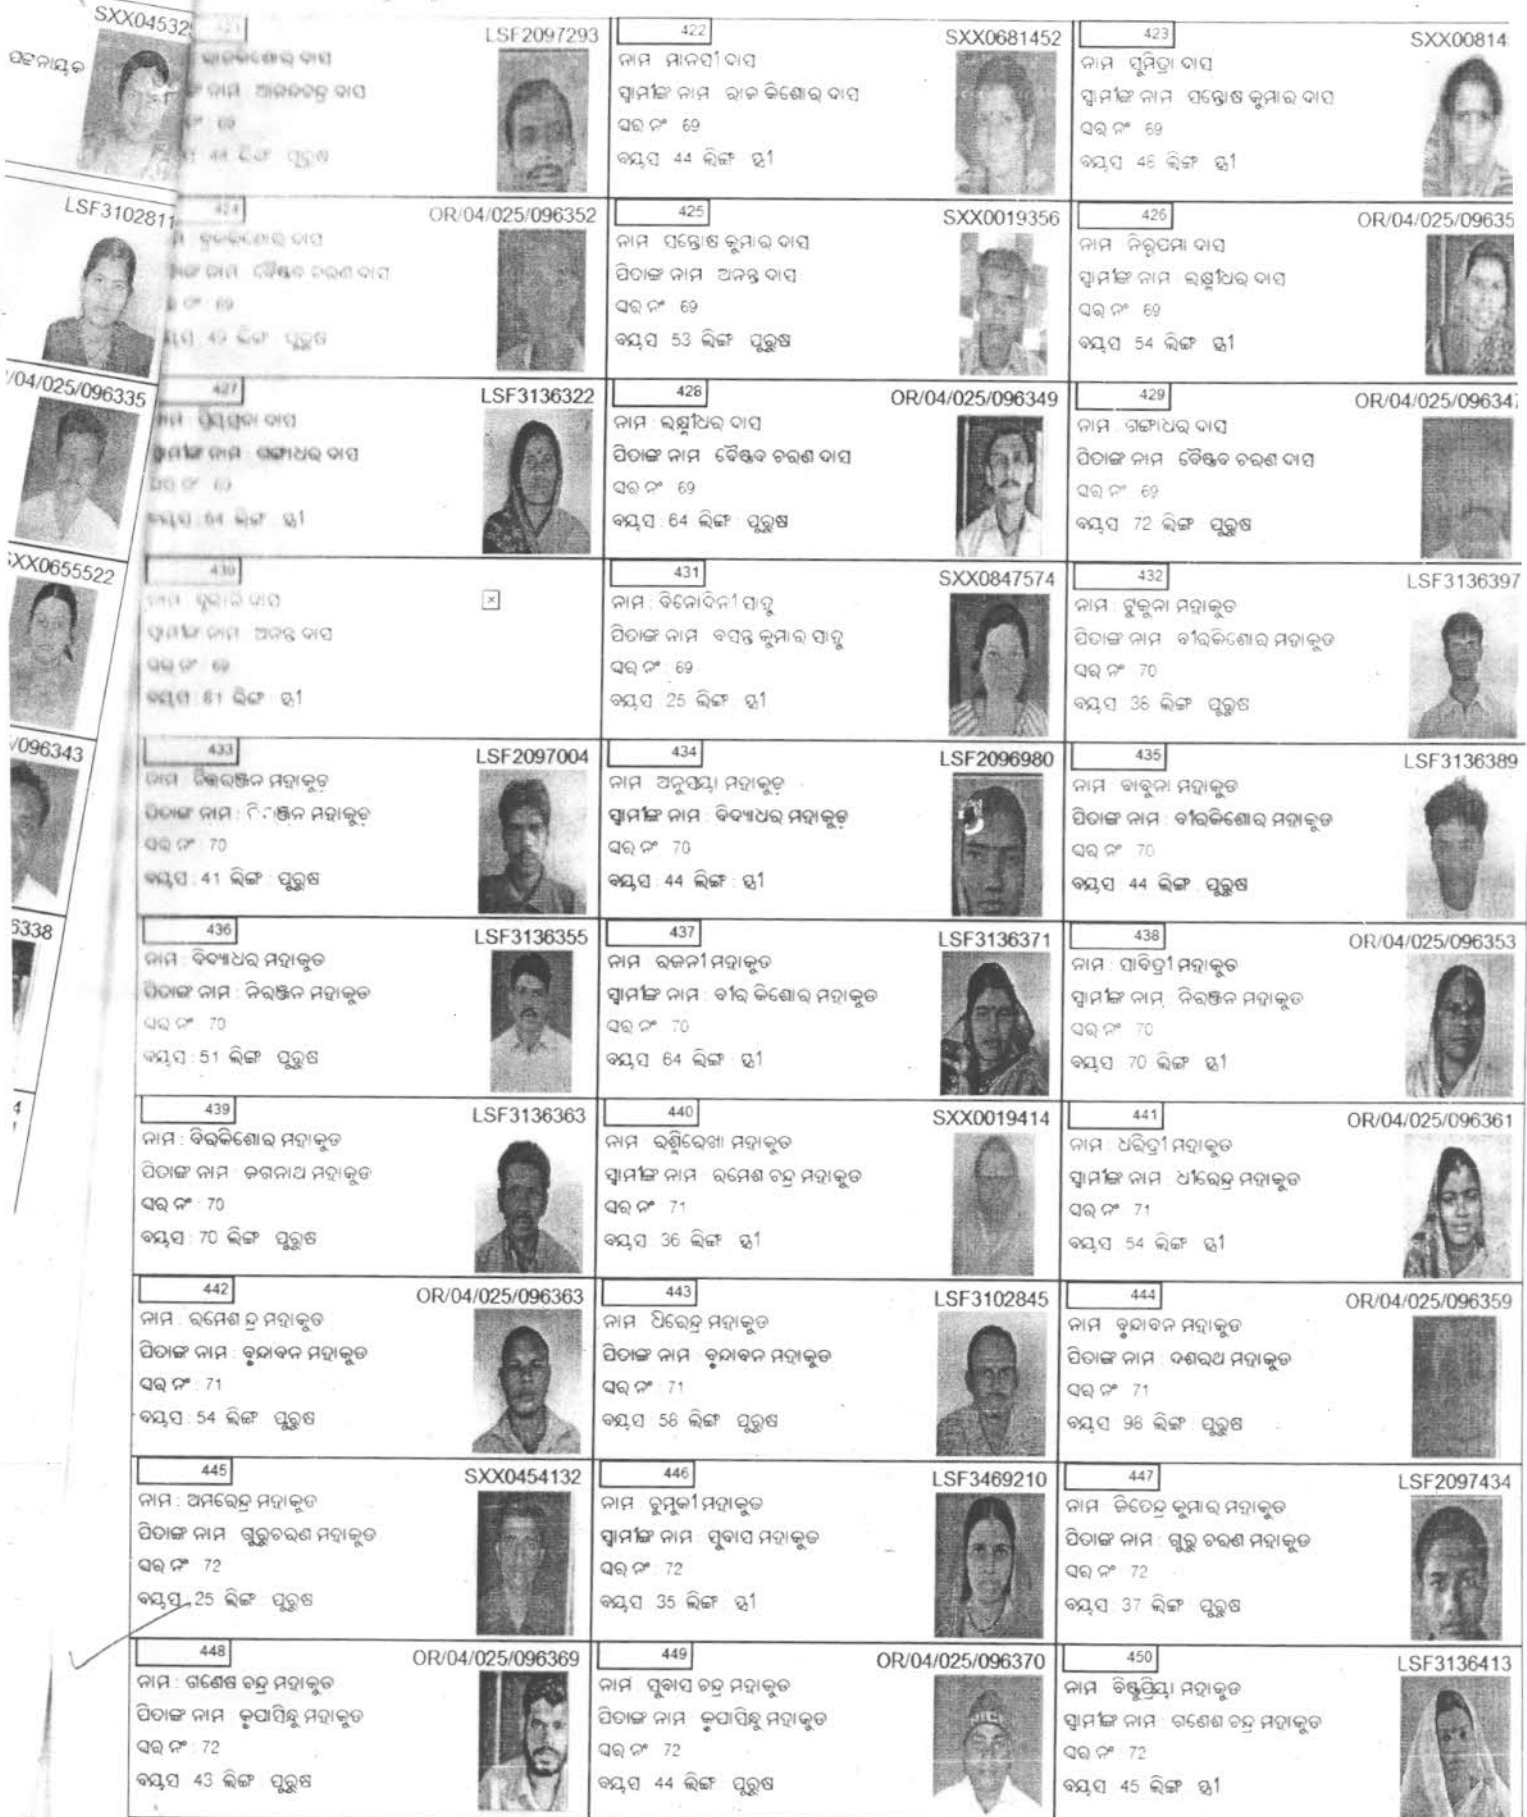 SXX04532
ପଟ୍ଟନାୟକ
LSF3102811
/04/025/096335
SXX0655522
/096343
6338
421
LSF2097293
ରାଜକିଶୋର ଦାସ
ନାମ ଆନନ୍ଦଚନ୍ଦ୍ର ଦାସ
69
44 ଲିଙ୍ଗ ପୁରୁଷ
422
SXX0681452
ନାମ ମାନସୀ ଦାସ
ସ୍ୱାମୀଙ୍କ ନାମ ରାଜ କିଶୋର ଦାସ
ଘର ନଂ 69
ବୟସ 44 ଲିଙ୍ଗ ସ୍ତ୍ରୀ
423
SXX00814
ନାମ ସୁମିତ୍ରା ଦାସ
ସ୍ୱାମୀଙ୍କ ନାମ ସନ୍ତୋଷ କୁମାର ଦାସ
ଘର ନଂ 69
ବୟସ 46 ଲିଙ୍ଗ ସ୍ତ୍ରୀ
424
OR/04/025/096352
ଦାସ
ନାମ ବୈଷ୍ଣବ ଚରଣ ଦାସ
ନଂ 69
49 ଲିଙ୍ଗ ପୁରୁଷ
425
SXX0019356
ନାମ ସନ୍ତୋଷ କୁମାର ଦାସ
ପିତାଙ୍କ ନାମ ଅନନ୍ତ ଦାସ
ଘର ନଂ 69
ବୟସ 53 ଲିଙ୍ଗ ପୁରୁଷ
426
OR/04/025/09635
ନାମ ନିରୁପମା ଦାସ
ସ୍ୱାମୀଙ୍କ ନାମ ଲକ୍ଷ୍ମୀଧର ଦାସ
ଘର ନଂ 69
ବୟସ 54 ଲିଙ୍ଗ ସ୍ତ୍ରୀ
427
LSF3136322
ନାମ : ଦାସ
ସ୍ୱାମୀଙ୍କ ନାମ : ଗଙ୍ଗାଧର ଦାସ
ଘର ନଂ 69
ବୟସ : 64 ଲିଙ୍ଗ : ସ୍ତ୍ରୀ
428
OR/04/025/096349
ନାମ : ଲକ୍ଷ୍ମୀଧର ଦାସ
ପିତାଙ୍କ ନାମ ବୈଷ୍ଣବ ଚରଣ ଦାସ
ଘର ନଂ 69
ବୟସ : 64 ଲିଙ୍ଗ : ପୁରୁଷ
429
OR/04/025/096347
ନାମ : ଗଙ୍ଗାଧର ଦାସ
ପିତାଙ୍କ ନାମ ବୈଷ୍ଣବ ଚରଣ ଦାସ
ଘର ନଂ 69
ବୟସ 72 ଲିଙ୍ଗ ପୁରୁଷ
430
ନାମ : ଦାସ
ସ୍ୱାମୀଙ୍କ ନାମ ଅନନ୍ତ ଦାସ
ଘର ନଂ 69
ବୟସ 81 ଲିଙ୍ଗ ସ୍ତ୍ରୀ
431
SXX0847574
ନାମ : ବିନୋଦିନୀ ସାହୁ
ପିତାଙ୍କ ନାମ ବସନ୍ତ କୁମାର ସାହୁ
ଘର ନଂ 69
ବୟସ 25 ଲିଙ୍ଗ ସ୍ତ୍ରୀ
432
LSF3136397
ନାମ : ଟୁକୁନା ମହାକୁଡ
ପିତାଙ୍କ ନାମ ବୀରକିଶୋର ମହାକୁଡ
ଘର ନଂ 70
ବୟସ 36 ଲିଙ୍ଗ ପୁରୁଷ
433
LSF2097004
ନାମ : ମହାକୁଡ଼
ପିତାଙ୍କ ନାମ : ମହାକୁଡ଼
ଘର ନଂ 70
ବୟସ : 41 ଲିଙ୍ଗ : ପୁରୁଷ
434
LSF2096980
ନାମ ଅନୁସୟା ମହାକୁଡ଼
ସ୍ୱାମୀଙ୍କ ନାମ : ବିଦ୍ୟାଧର ମହାକୁଡ଼
ଘର ନଂ 70
ବୟସ : 44 ଲିଙ୍ଗ : ସ୍ତ୍ରୀ
435
LSF3136389
ନାମ ବାବୁନା ମହାକୁଡ
ପିତାଙ୍କ ନାମ : ବୀରକିଶୋର ମହାକୁଡ
ଘର ନଂ 70
ବୟସ : 44 ଲିଙ୍ଗ : ପୁରୁଷ
436
LSF3136355
ନାମ : ବିଦ୍ୟାଧର ମହାକୁଡ
ପିତାଙ୍କ ନାମ : ନିରଞ୍ଜନ ମହାକୁଡ
ଘର ନଂ 70
ବୟସ : 51 ଲିଙ୍ଗ ପୁରୁଷ
437
LSF3136371
ନାମ ରଜନୀ ମହାକୁଡ
ସ୍ୱାମୀଙ୍କ ନାମ : ବୀର କିଶୋର ମହାକୁଡ
ଘର ନଂ 70
ବୟସ 64 ଲିଙ୍ଗ ସ୍ତ୍ରୀ
438
OR/04/025/096353
ନାମ : ସାବିତ୍ରୀ ମହାକୁଡ
ସ୍ୱାମୀଙ୍କ ନାମ ନିରଞ୍ଜନ ମହାକୁଡ
ଘର ନଂ 70
ବୟସ 70 ଲିଙ୍ଗ ସ୍ତ୍ରୀ
439
LSF3136363
ନାମ : ବିରକିଶୋର ମହାକୁଡ
ପିତାଙ୍କ ନାମ ଜଗନାଥ ମହାକୁଡ
ଘର ନଂ 70
ବୟସ : 70 ଲିଙ୍ଗ ପୁରୁଷ
440
SXX0019414
ନାମ ରଶ୍ମିରେଖା ମହାକୁଡ
ସ୍ୱାମୀଙ୍କ ନାମ ରମେଶ ଚନ୍ଦ୍ର ମହାକୁଡ
ଘର ନଂ 71
ବୟସ 36 ଲିଙ୍ଗ ସ୍ତ୍ରୀ
441
OR/04/025/096361
ନାମ : ଧରିତ୍ରୀ ମହାକୁଡ
ସ୍ୱାମୀଙ୍କ ନାମ : ଧୀରେନ୍ଦ୍ର ମହାକୁଡ
ଘର ନଂ 71
ବୟସ 54 ଲିଙ୍ଗ ସ୍ତ୍ରୀ
442
OR/04/025/096363
ନାମ : ରମେଶ ନ୍ଦ୍ର ମହାକୁଡ
ପିତାଙ୍କ ନାମ : ବୃନ୍ଦାବନ ମହାକୁଡ
ଘର ନଂ : 71
ବୟସ : 54 ଲିଙ୍ଗ ପୁରୁଷ
443
LSF3102845
ନାମ ଧିରେନ୍ଦ୍ର ମହାକୁଡ
ପିତାଙ୍କ ନାମ : ବୃନ୍ଦାବନ ମହାକୁଡ
ଘର ନଂ : 71
ବୟସ 58 ଲିଙ୍ଗ ପୁରୁଷ
444
OR/04/025/096359
ନାମ ବୃନ୍ଦାବନ ମହାକୁଡ
ପିତାଙ୍କ ନାମ : ଦଶରଥ ମହାକୁଡ
ଘର ନଂ 71
ବୟସ 98 ଲିଙ୍ଗ : ପୁରୁଷ
445
SXX0454132
ନାମ : ଅମରେନ୍ଦ୍ର ମହାକୁଡ
ପିତାଙ୍କ ନାମ ଗୁରୁଚରଣ ମହାକୁଡ
ଘର ନଂ 72
ବୟସ 25 ଲିଙ୍ଗ ପୁରୁଷ
446
LSF3469210
ନାମ ଝୁମୁକୀ ମହାକୁଡ
ସ୍ୱାମୀଙ୍କ ନାମ : ସୁବାସ ମହାକୁଡ
ଘର ନଂ : 72
ବୟସ 35 ଲିଙ୍ଗ ସ୍ତ୍ରୀ
447
LSF2097434
ନାମ ଜିତେନ୍ଦ୍ର କୁମାର ମହାକୁଡ
ପିତାଙ୍କ ନାମ : ଗୁରୁ ଚରଣ ମହାକୁଡ
ଘର ନଂ : 72
ବୟସ : 37 ଲିଙ୍ଗ ପୁରୁଷ
448
OR/04/025/096369
ନାମ : ଗଣେଷ ଚନ୍ଦ୍ର ମହାକୁଡ
ପିତାଙ୍କ ନାମ କୃପାସିନ୍ଧୁ ମହାକୁଡ
ଘର ନଂ : 72
ବୟସ 43 ଲିଙ୍ଗ : ପୁରୁଷ
449
OR/04/025/096370
ନାମ ସୁବାସ ଚନ୍ଦ୍ର ମହାକୁଡ
ପିତାଙ୍କ ନାମ କୃପାସିନ୍ଧୁ ମହାକୁଡ
ଘର ନଂ 72
ବୟସ 44 ଲିଙ୍ଗ ପୁରୁଷ
450
LSF3136413
ନାମ ବିଷ୍ଣୁପ୍ରିୟା ମହାକୁଡ
ସ୍ୱାମୀଙ୍କ ନାମ : ଗଣେଶ ଚନ୍ଦ୍ର ମହାକୁଡ
ଘର ନଂ : 72
ବୟସ 45 ଲିଙ୍ଗ ସ୍ତ୍ରୀ